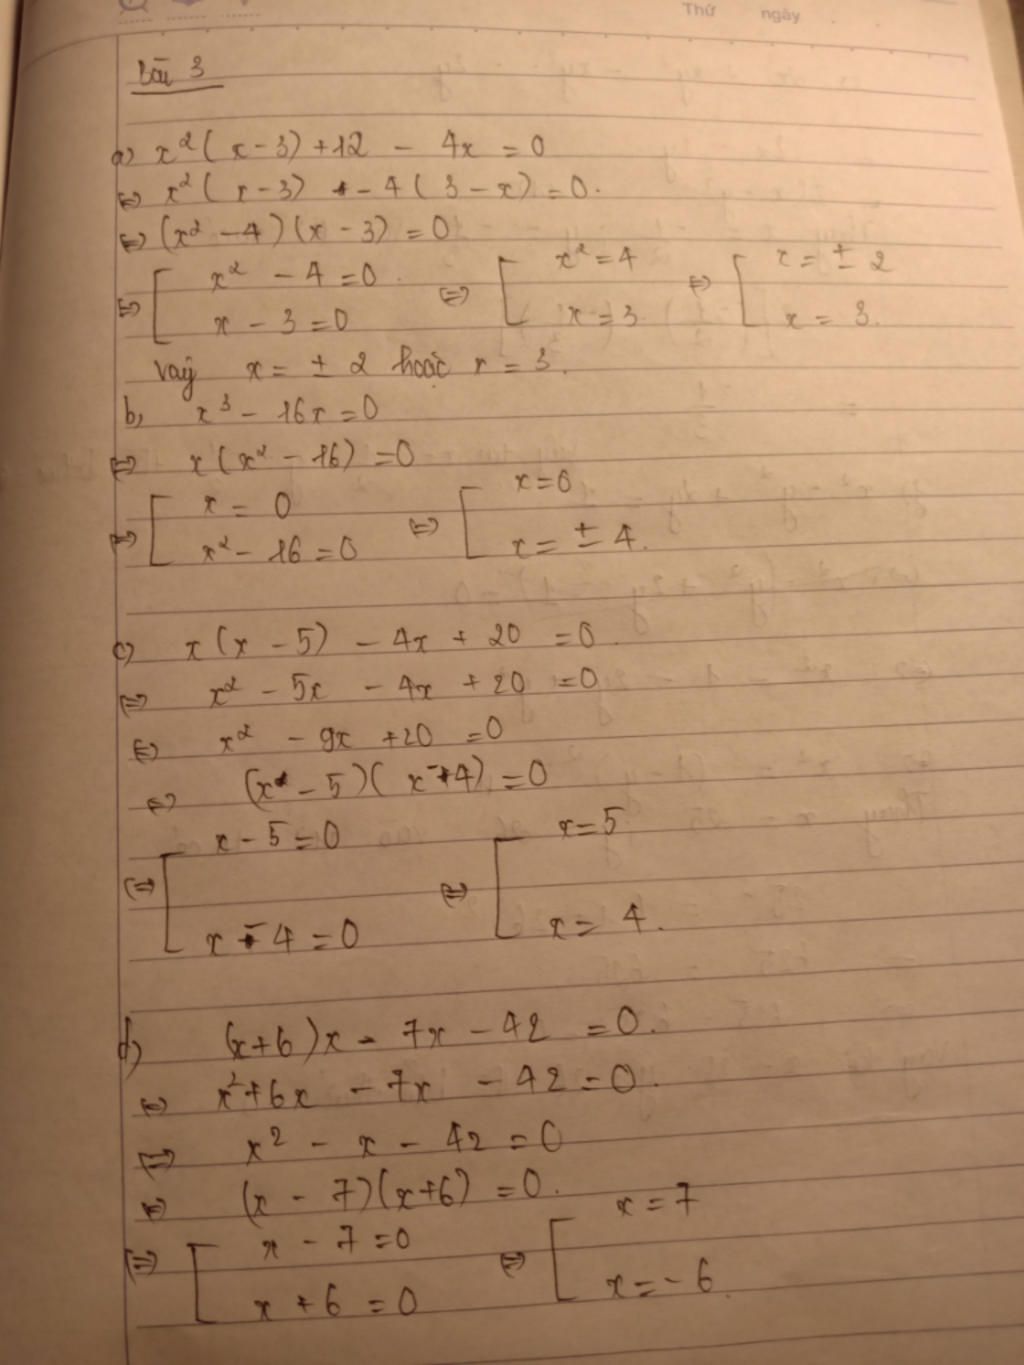 Thứ ngày
Bài 3
a) x²(x-3) + 12 - 4x = 0
⇔ x²(x-3) + - 4(3-x) = 0.
⇔ (x² - 4)(x - 3) = 0
⇔ [ x² - 4 = 0 ⇔ [ x² = 4 ⇔ [ x = ± 2
x - 3 = 0 x = 3 x = 3.
Vaỵ x = ± 2 hoặc x = 3.
b, x³ - 16x = 0
⇔ x(x² - 16) = 0
⇔ [ x = 0 ⇔ [ x = 0
x² - 16 = 0 x = ± 4.
c) x(x - 5) - 4x + 20 = 0.
⇔ x² - 5x - 4x + 20 = 0
⇔ x² - 9x + 20 = 0
⇔ (x - 5)(x - 4) = 0
⇔ [ x - 5 = 0 ⇔ [ x = 5
x - 4 = 0 x = 4.
d) (x+6)x - 7x - 42 = 0.
⇔ x² + 6x - 7x - 42 = 0.
⇔ x² - x - 42 = 0
⇔ (x - 7)(x+6) = 0.
⇔ [ x - 7 = 0 ⇔ [ x = 7
x + 6 = 0 x = - 6.